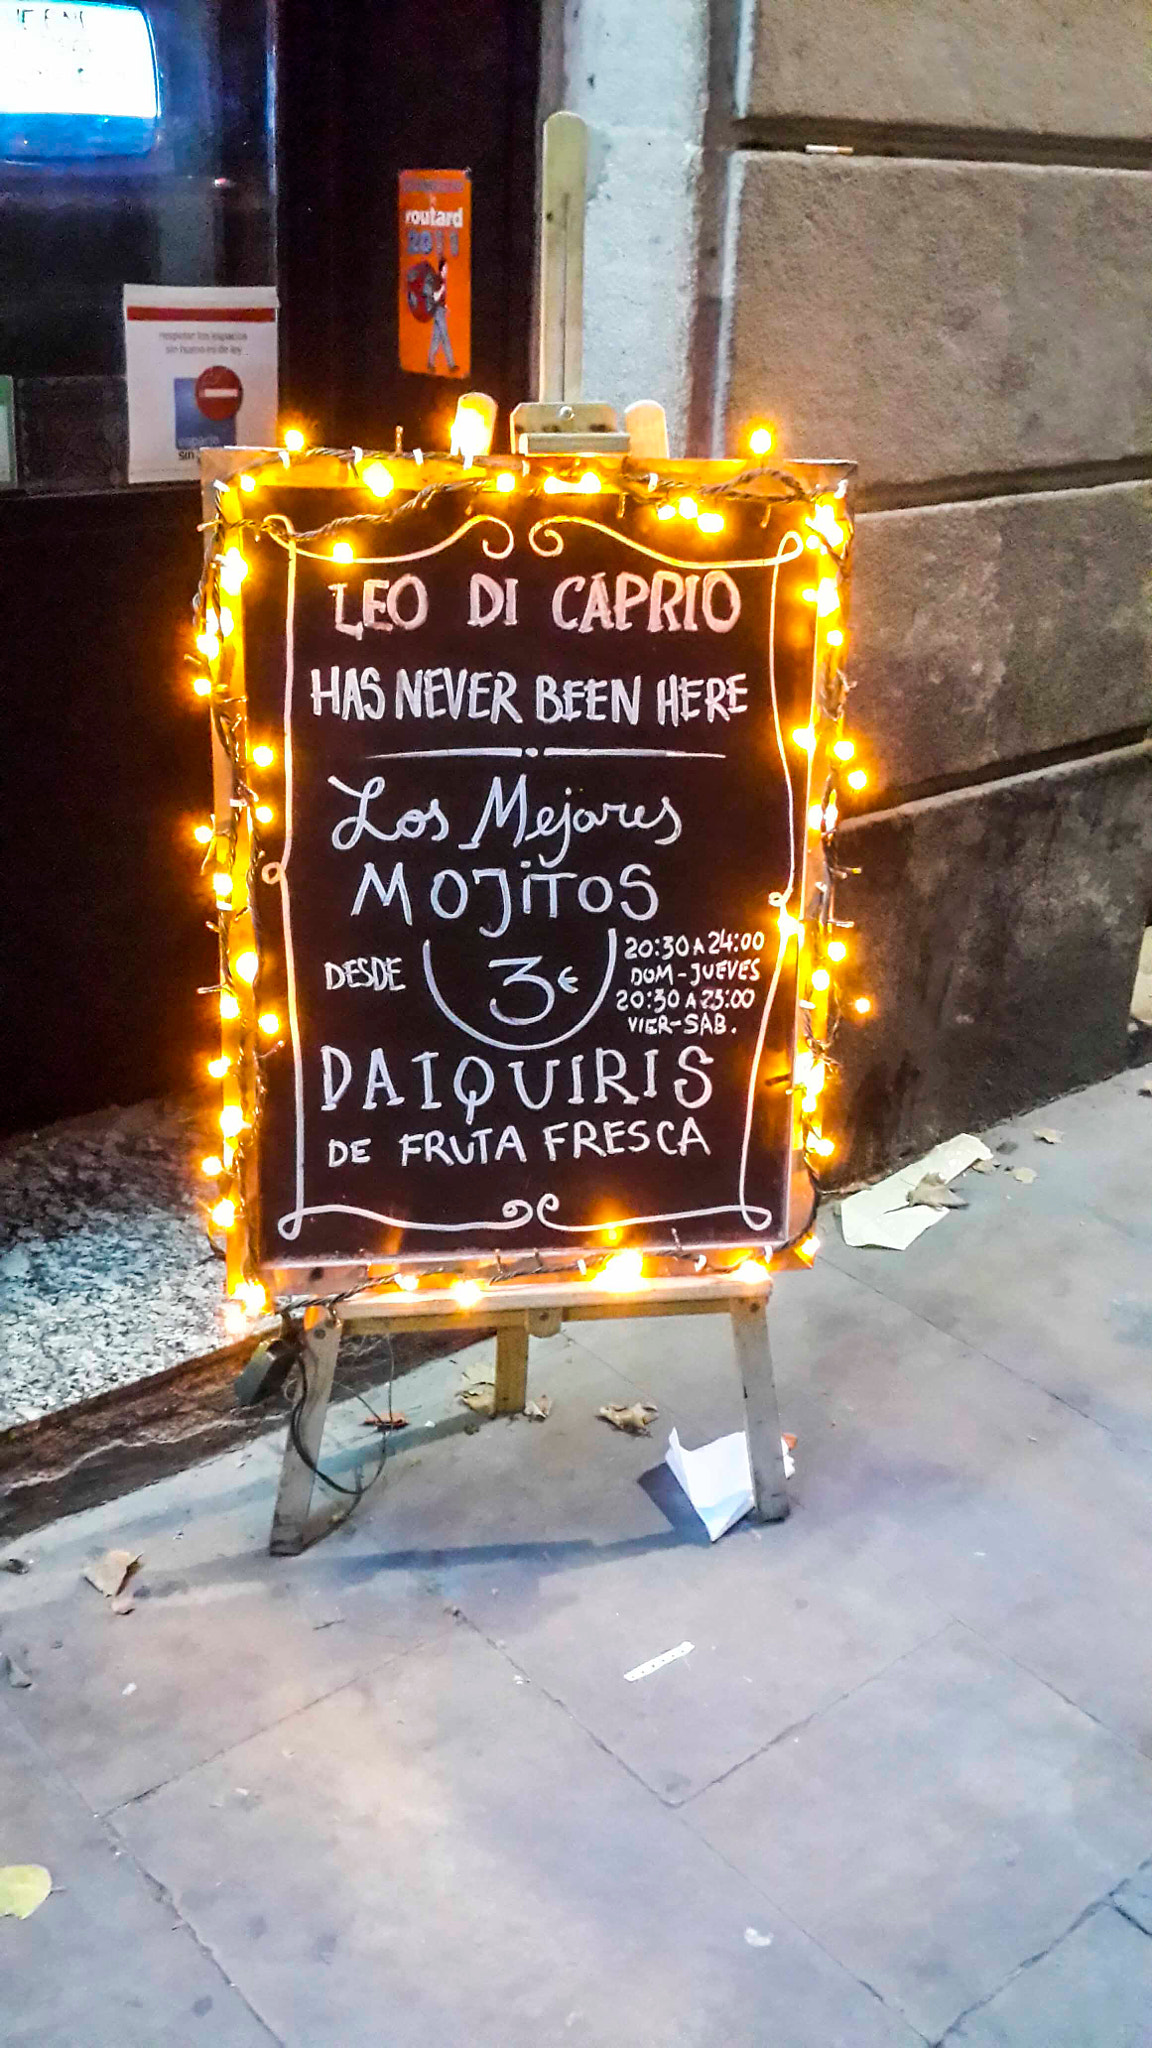 routard
2011
respetar los espacios
sin humo es de ley
espacio
sin
LEO DI CAPRIO
HAS NEVER BEEN HERE
Los Mejores
MOJITOS
DESDE 3€
20:30 A 24:00
DOM-JUEVES
20:30 A 23:00
VIER-SAB.
DAIQUIRIS
DE FRUTA FRESCA